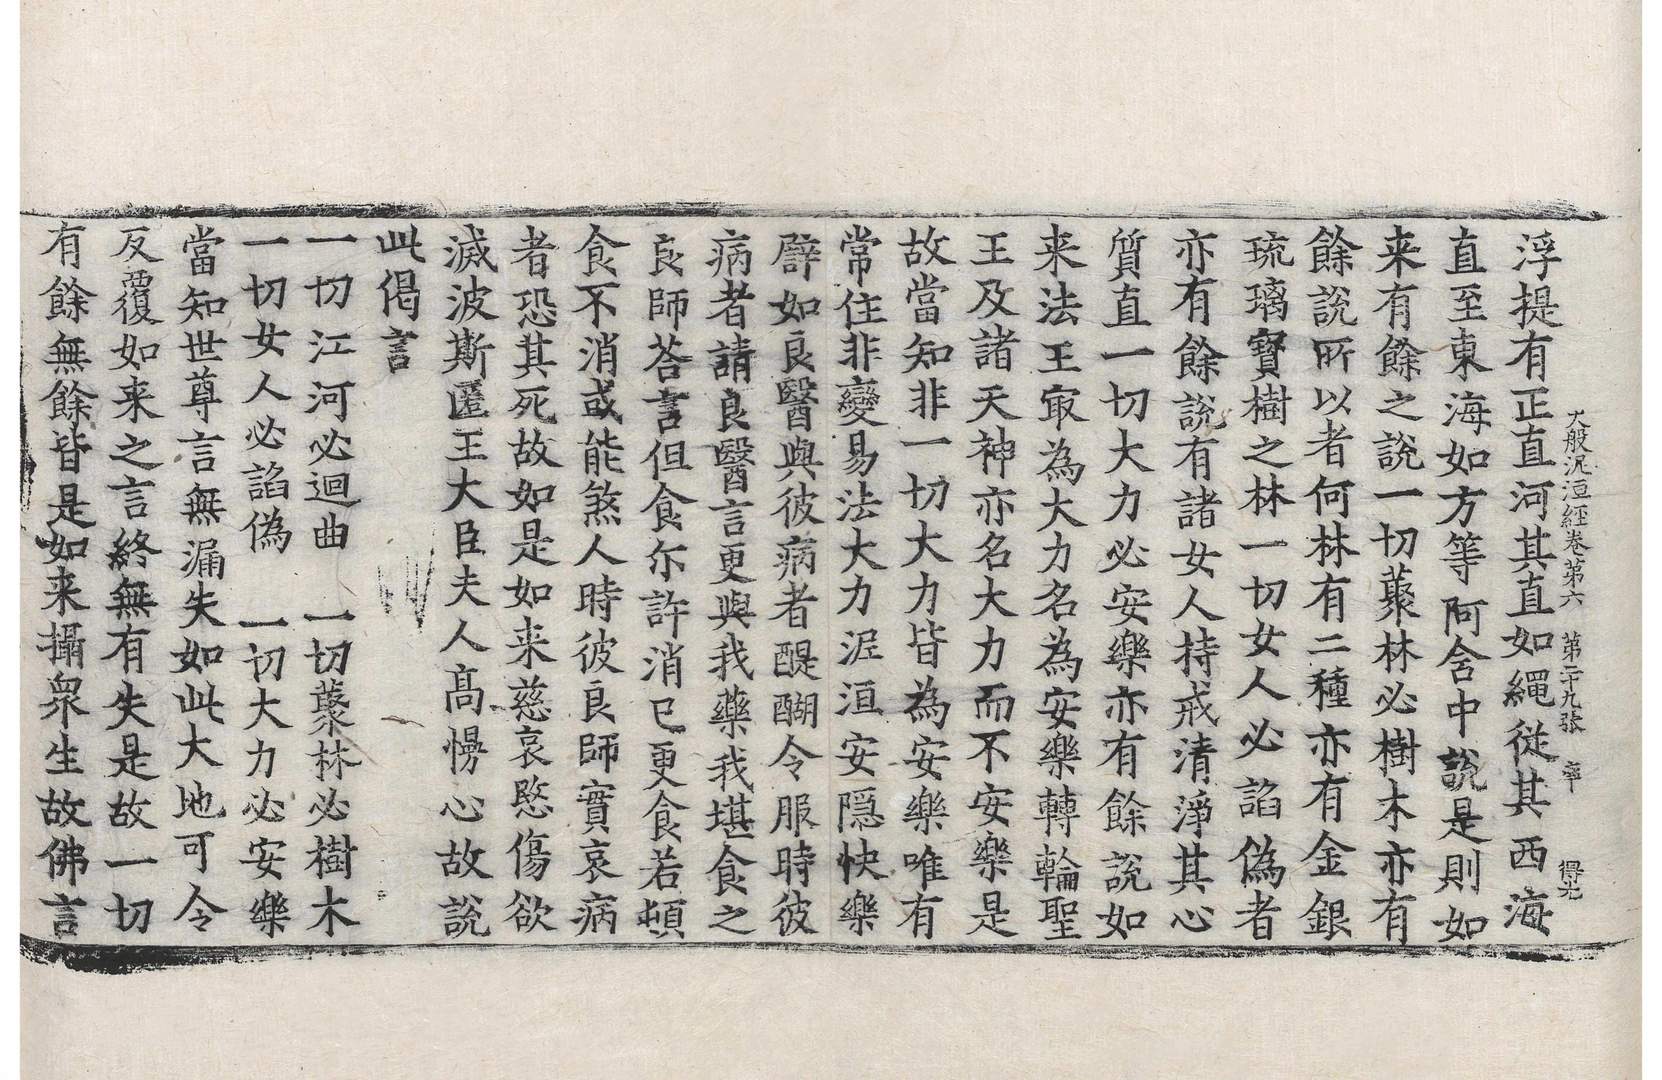 大般泥洹經卷第六　第二十九張　率　得光
浮提有正直河其直如繩從其西海
直至東海如方等阿含中說是則如
来有餘之說一切藂林必樹木亦有
餘說所以者何林有二種亦有金銀
琉璃寶樹之林一切女人必諂偽者
亦有餘說有諸女人持戒清淨其心
質直一切大力必安樂亦有餘說如
来法王㝡為大力名為安樂轉輪聖
王及諸天神亦名大力而不安樂是
故當知非一切大力皆為安樂唯有
常住非變易法大力泥洹安隠快樂
譬如良醫與彼病者醍醐令服時彼
病者請良醫言更與我藥我堪食之
良師荅言但食尒許消已更食若頓
食不消或能煞人時彼良師實哀病
者恐其死故如是如来慈哀愍傷欲
滅波斯匿王大臣夫人髙慢心故說
此偈言
一切江河必迴曲　一切藂林必樹木
一切女人必諂偽　一切大力必安樂
當知世尊言無漏失如此大地可令
反覆如来之言終無有失是故一切
有餘無餘皆是如来攝衆生故佛言